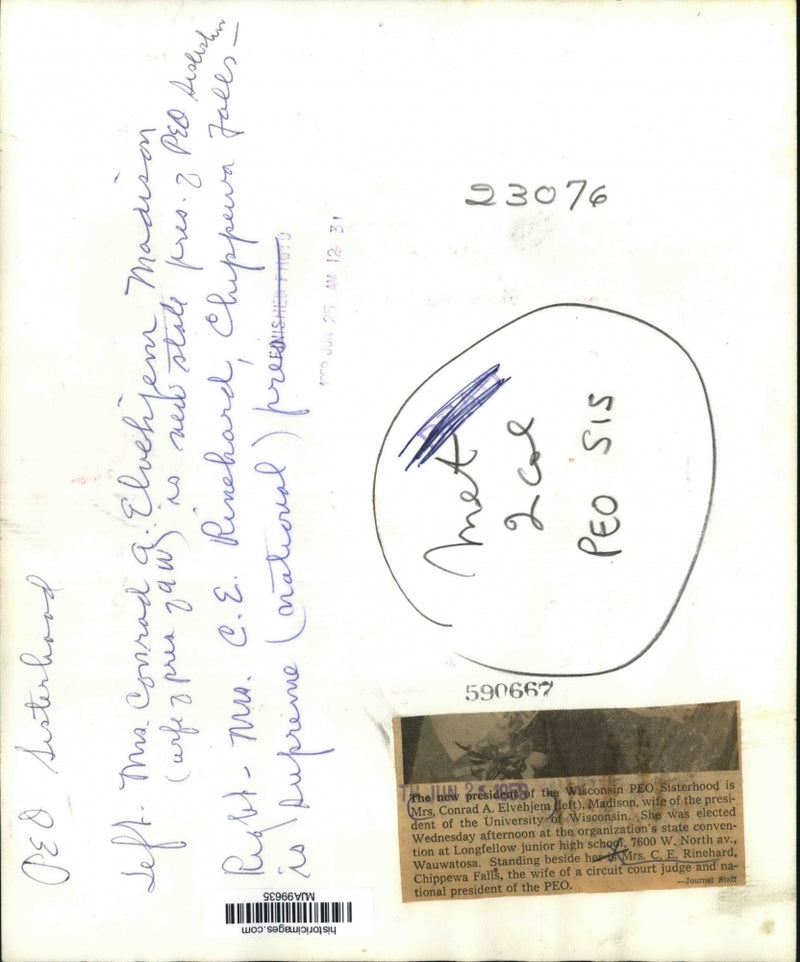 PEO Sisterhood
Left - Mrs. Conrad A. Elvehjem Madison
(wife of pres of UW) is new state pres. of PEO Sisterhood
Right - Mrs. C. E. Rinehard, Chippewa Falls -
is supreme (national) pres
FINISHED PHOTO
JUN 25 AM 12 31
23076
Met
2 col
PEO SIS
590667
The new president of the Wisconsin PEO Sisterhood is
Mrs. Conrad A. Elvehjem (left), Madison, wife of the presi-
dent of the University of Wisconsin. She was elected
Wednesday afternoon at the organization's state conven-
tion at Longfellow junior high school, 7600 W. North av.,
Wauwatosa. Standing beside her is Mrs. C. E. Rinehard,
Chippewa Falls, the wife of a circuit court judge and na-
tional president of the PEO.
—Journal Staff
historicimages.com
MJA99635